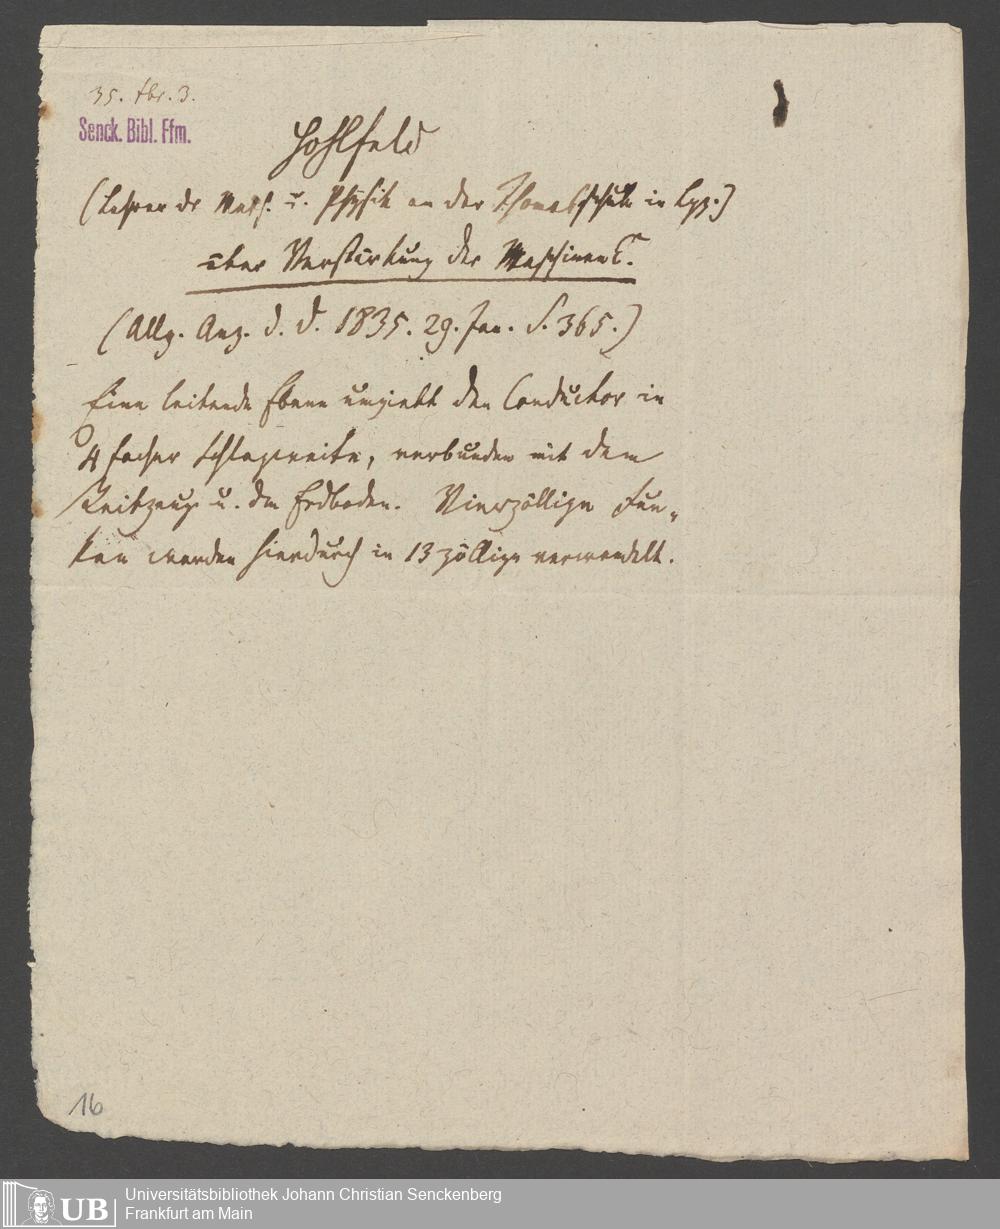 35. Fbr. 3.
Senck. Bibl. Ffm.
Hohlfeld
(Lehrer dr Math. u. Physik an der Thomasschule in Lpz.)
über Verstärkung der Maschinen
(Allg. Anz. d. D. 1835. 29. Jan. S. 365.)
Eine leitende Ebene umgiebt den Conductor in
4 facher Schlagweite, verbunden mit dem
Reibzeuge u. dm Erdboden. Vierzöllige Fun-
ken werden hierdurch in 13 zöllige verwandelt.
16
UB
Universitätsbibliothek Johann Christian Senckenberg
Frankfurt am Main